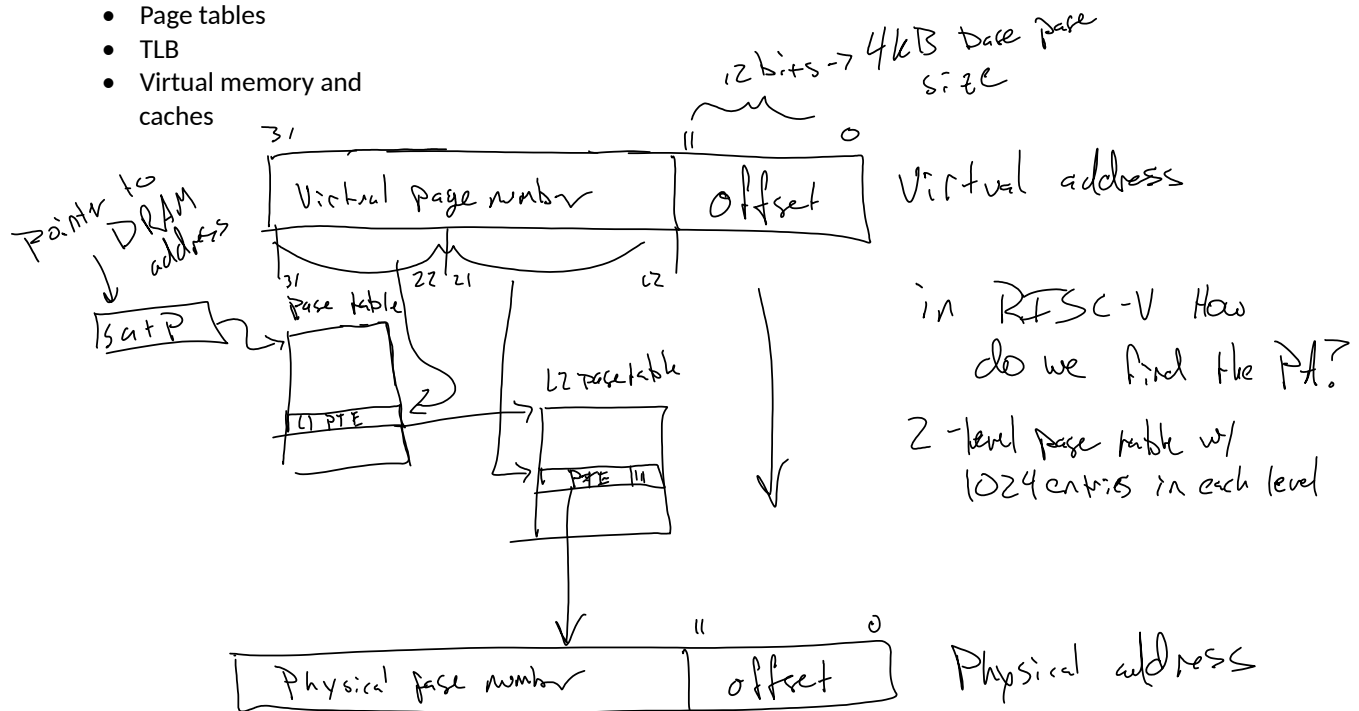 • Page tables
• TLB
• Virtual memory and
caches
12 bits -> 4kB base page
size
31
11
0
Virtual page number
offset
Virtual address
pointer to
DRAM
address
31
22
21
12
satp
page table
L1 PTE
L2 page table
PTE
in RISC-V How
do we find the PA?
2-level page table w/
1024 entries in each level
11
0
Physical page number
offset
Physical address